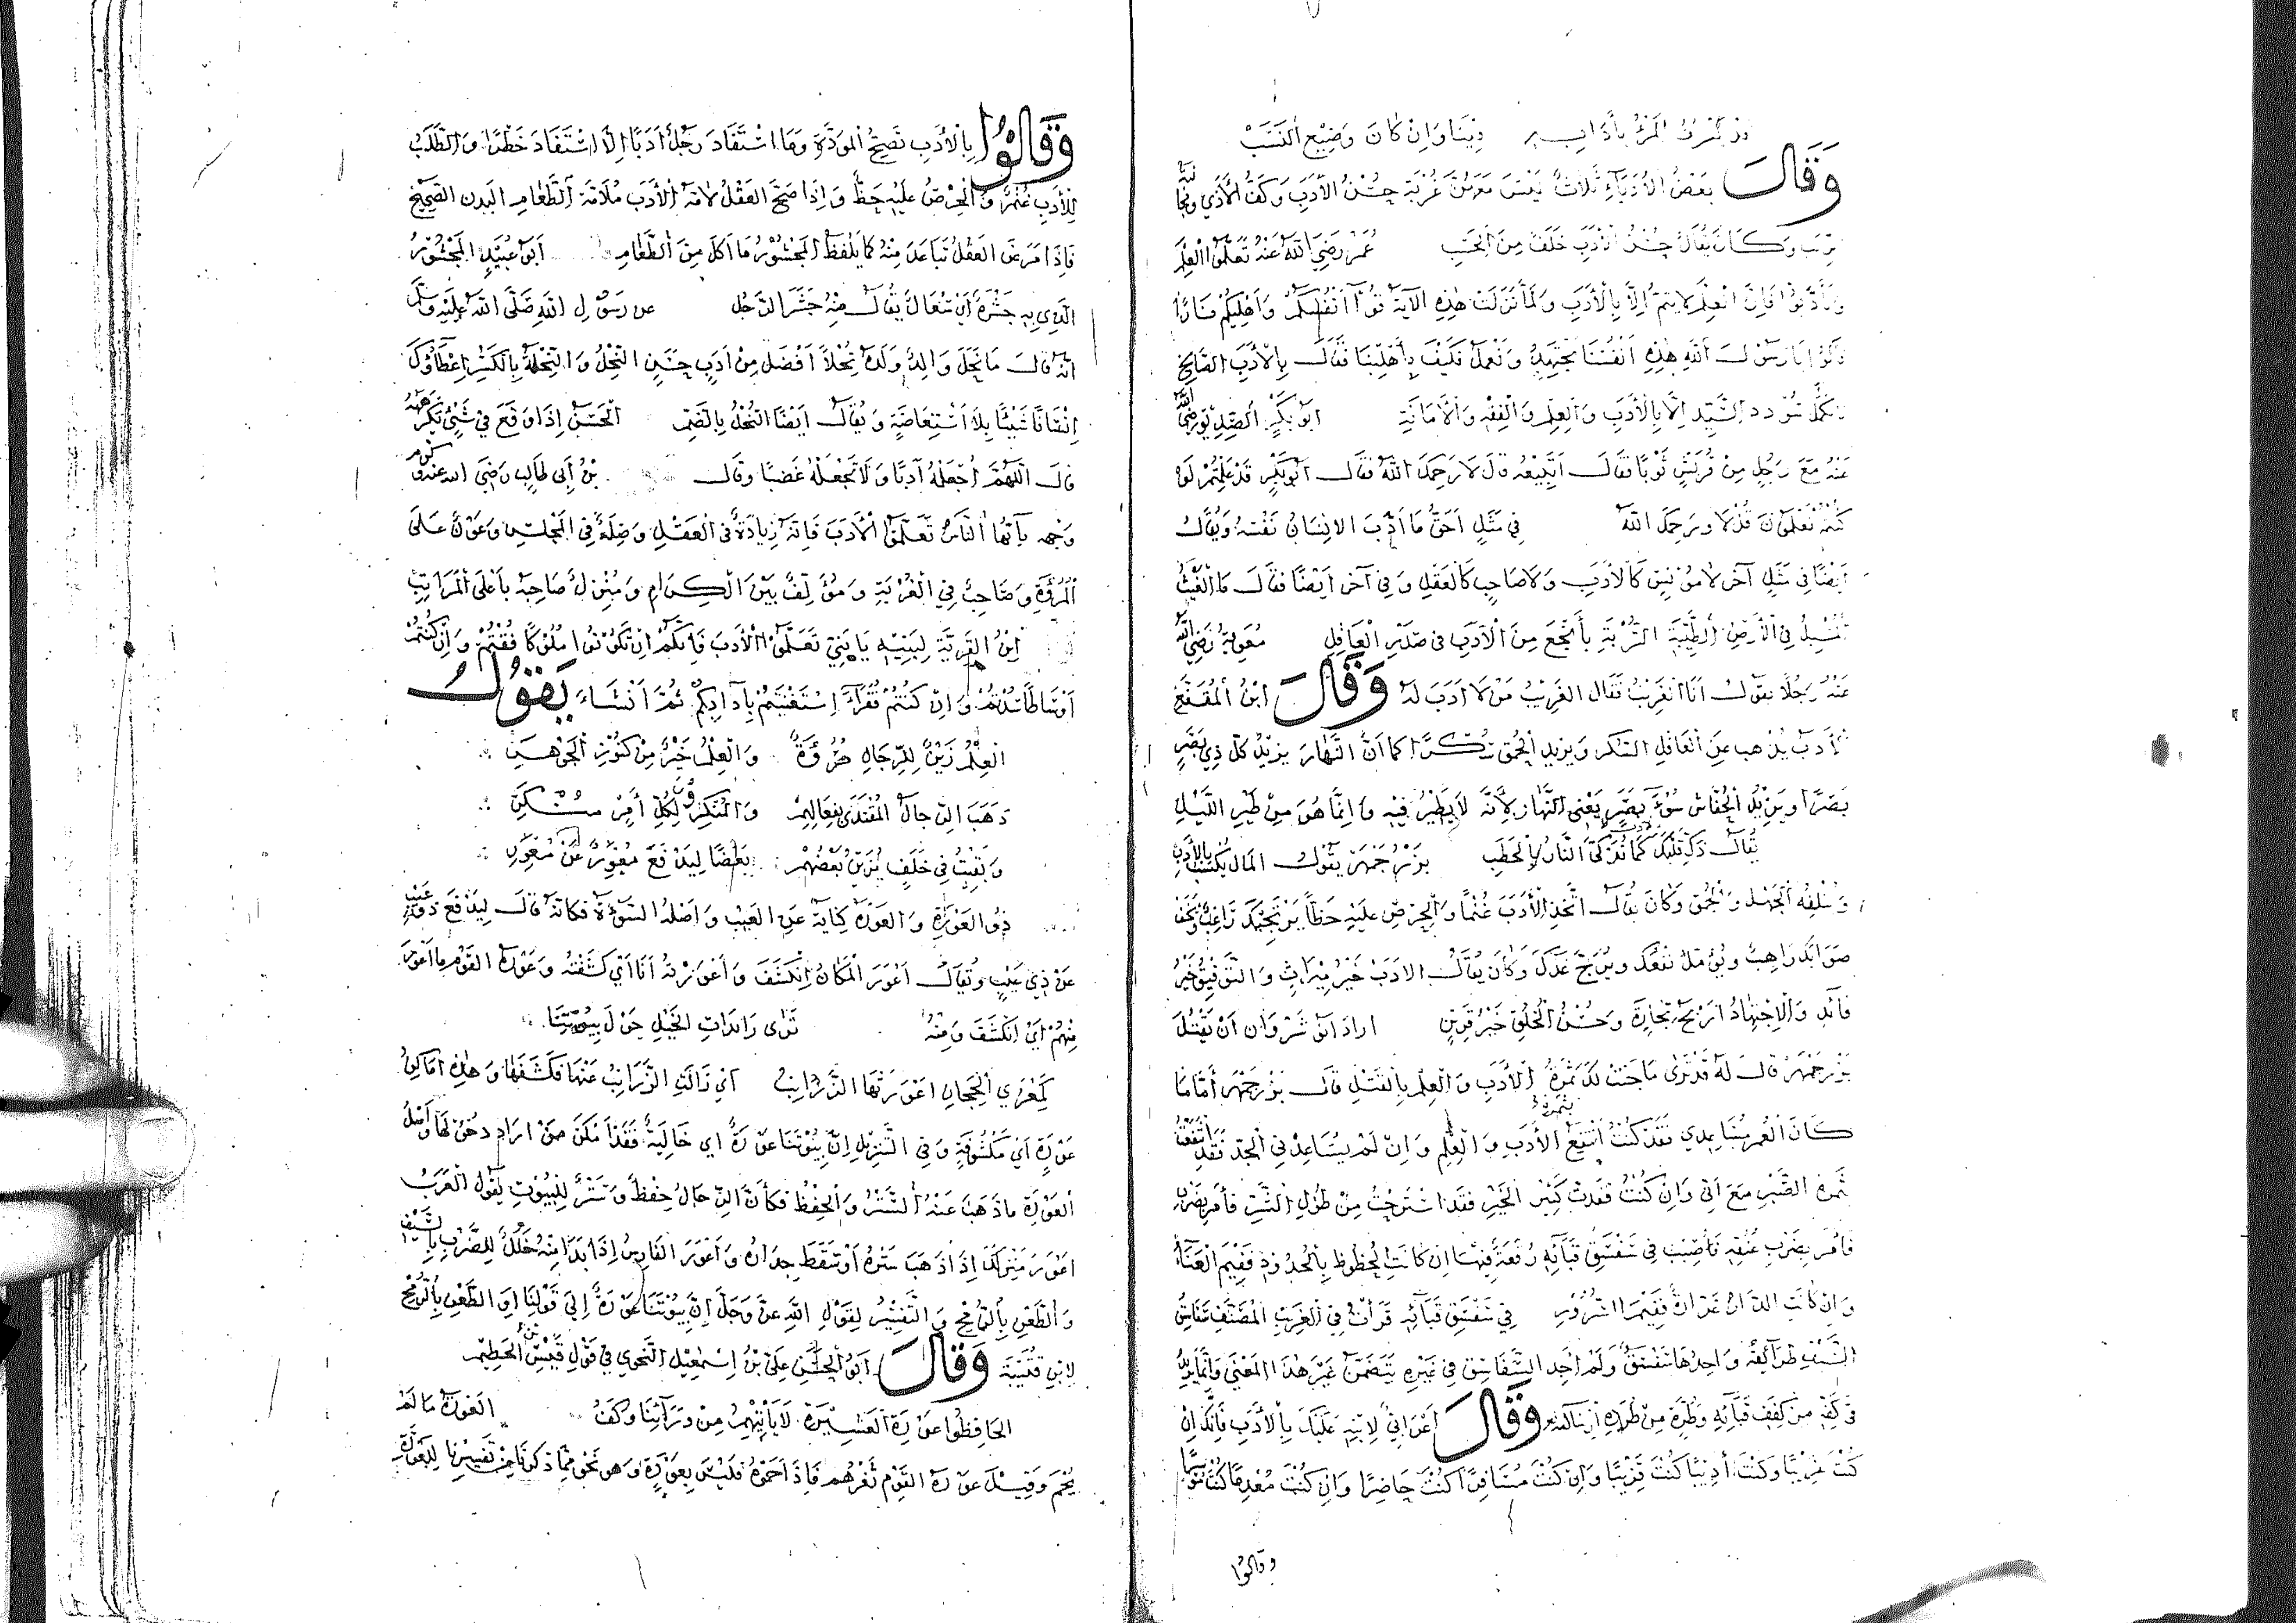 قد يشرف المرء بآدابه دينا وان كان وضيع النسب
وَقَالَ بعض الأدباء ثلاث ليس معهن غربة حسن الأدب وكف الأذى ومجانبة
الريب وكان يقال حسن الأدب خلف من الحسب عمر رضي الله عنه تعلموا العلم
وتأدبوا فان العلم لا يتم الا بالأدب ولما نزلت هذه الآية قوا أنفسكم وأهليكم نارا
قالوا يا رسول الله هذه أنفسنا نجتهد ونعمل فكيف بأهلينا فقال بالأدب الصالح
يكمل سودد السيد الا بالأدب والعلم والفقه والأمانة ابو بكر الصديق رضي الله
عنه مع رجل من قريش ثوبا فقال اتبيعه قال لا رحمك الله فقال ابو بكر قد علمتم لو
كنتم تعلمون قل لا ويرحمك الله في مثل احق ما ادب الانسان نفسه ويقال
ايضا في مثل آخر لا مونس كالأدب ولا صاحب كالعقل وفي آخر ايضا فقال ما الغيث
المسبل في الأرض الطيبة التربة بأنجع من الأدب في صدر العاقل معوية رضي الله
عنه رجلا يقول انا الغريب فقال الغريب من لا ادب له وَقَالَ ابن المقفع
الأدب يذهب عن العاقل السكر ويزيد الحمق سكرا كما ان النهار يزيد كل ذي بصر
بصرا ويزيد الخفاش سوء بصر يعني النهار لأنه لا يطير فيه وانما هو من طير الليل
يقال ذك قلبك كما تذكى النار بالحطب بزرجمهر يقول المال يكسب بالأدب
ويتلفه الجهل والحمق وكان يقال اتخذ الأدب غنما والحرص عليه حظا يرتجيك راغب ويخف
صوابك راهب ويؤمل نفعك ويرج عدلك وكان يقال الادب خير ميراث والتوفيق خير
قائد والاجتهاد اربح تجارة وحسن الخلق خير قرين اراد انو شروان ان يقتل
بزرجمهر قال له قد ترى ما جنت لك ثمرة الأدب والعلم بالقتل قال بزرجمهر أما ما
كان العمر بيدي فقد كنت أنتفع بثمرة الأدب والعلم وان لم يساعدني الجد فقد انتفعت
ثمرة الصبر مع اني وان كنت فقدت كثير الخير فقد استرحت من طول الشر فأمر بضرب
فأمر بضرب عنقه فأصيب في سفسق قبائه رقعة فيها ان كانت الحظوظ بالجدود ففيم العناء
وان كانت الدار غدارة ففيم السرور في سفسق قبائه قرأت في الغريب المصنف سفاسق
السيف طرائقه واحدها سفسقة ولم اجد السفاسق في غيره يتضمن غير هذا المعنى وانما يريد
في كفة من كفف قبائه وطرة من طرره وَقَالَ أعرابي لابنه عليك بالأدب فانك ان
كنت غريبا وكنت أديبا كنت قريبا وان كنت مسافرا كنت حاضرا وان كنت معدما كنت
وقالوا
وَقَالُوا بالأدب تصح المودة وما استفاد رجل أدبا الا استفاد خطرا والطلب
للأدب غنم والحرص عليه حظ واذا صح العقل لاقه الأدب ملاقة الطعام البدن الصحيح
فاذا مرض العقل تباعد منه كما يلفظ المجشور ما اكل من الطعام ابو عبيد المجشور
الذي به جشرة أي سعال يقال منه جشر الرجل عن رسول الله صلى الله عليه وسلم
انه قال ما نحل والد ولده نحلا أفضل من أدب حسن النحل والنحلة بالكسر اعطاؤك
انسانا شيئا بلا استعاضة ويقال ايضا النحل بالضم الحسن اذا وقع في شيء يكرهه
قال اللهم اجعله أدبا ولا تجعله غضبا وقال بن أبي طالب رضي الله عنه وكرم
وجهه يا أيها الناس تعلموا الأدب فانه زيادة في العقل وصلة في المجلس وعون على
المروة وصاحب في الغربة ومؤلف بين الكرام ومنزل صاحبه بأعلى المراتب
ابن القرية لبنيه يا بني تعلموا الأدب فانكم ان تكونوا ملوكا فقتم وان كنتم
اوساطا سدتم وان كنتم فقراء استغنيتم بآدابكم ثم أنشاء يَقُولُ
العلم زين للرجال مروءة والعلم خير من كنوز الجوهر
ذهب الرجال المقتدى بفعالهم والمنكرون لكل أمر منكر
وبقيت في خلف يزين بعضهم بعضا ليدفع معور عن معور
ذو العورة والعورة كناية عن العيب واصله السوءة فكانه قال ليدفع ذو عيب
عن ذي عيب ويقال اعور المكان انكشف واعورته انا اي كشفته وعورة القوم ما اعور
منهم اي انكشف ومنه ترى رائدات الخيل حول بيوتنا
كمعزى الحجاز اعورتها الزرائب اي زالت الزرائب عنها فكشفها وهذه اماكن
عورة اي مكشوفة وفي التنزيل ان بيوتنا عورة اي خالية فقد أمكن من اراد دخولها واصل
العورة ما ذهب عنه الستر والحفظ فكأن الرجال حفظ وستر للبيوت يقول العرب
اعور منزلك اذا ذهب ستره أو سقط جداره واعور الفارس اذا بدا منه خلل للضرب بالسيف
والطعن بالرمح والتفسير لقول الله عز وجل ان بيوتنا عورة إلى قولنا او الطعن بالرمح
لابن قتيبة وَقَالَ ابو الحسن علي بن اسمعيل النحوي في قول قيس بن الخطيم
الحافظوا عورة العشيرة لا يأتيهم من ورائنا وكف العورة ما لم
يحم وقيل عورة القوم ثغرهم فاذا حموه فليس بعورة وهو نحو مما ذكرنا من تفسيرنا للعورة